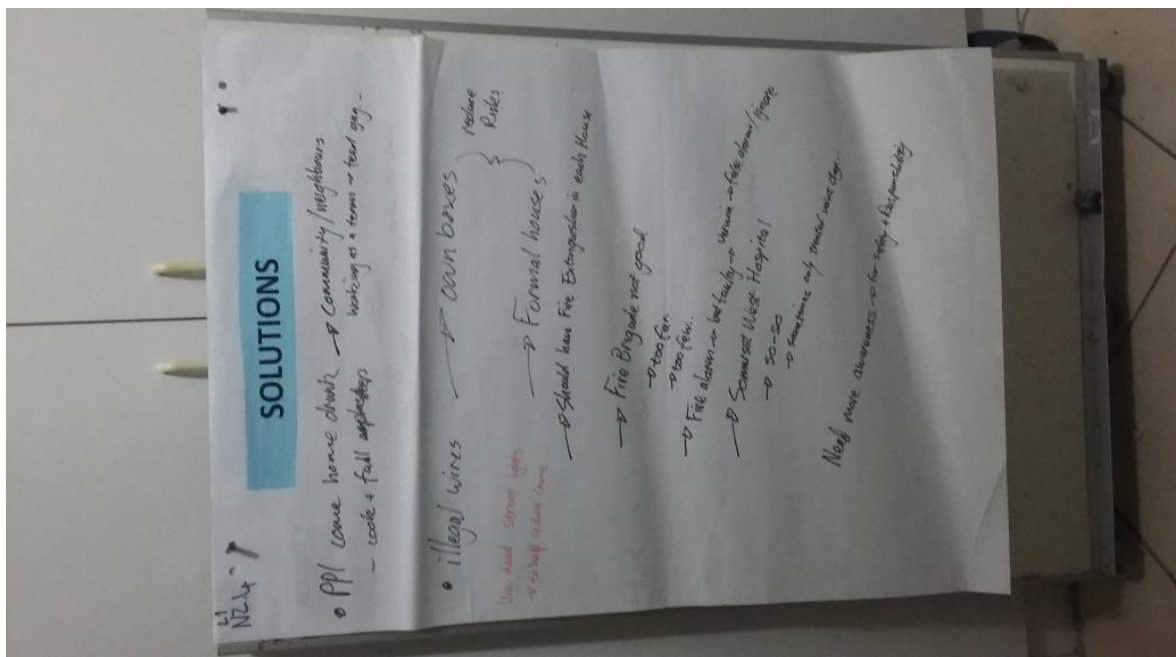 N2.4
SOLUTIONS
• PPl come home drunk → Community/neighbours
- cook + fall asleep working as a team →
• illegal wires → own boxes } reduce
→ Formal houses } Risks
We need street lights
→ to help reduce crime
→ Should have Fire Extinguisher in each House
→ Fire Brigade not good
→ too far
→ too few..
→ Fire alarm → but faulty → → False alarms/ignore
→ Somerset West Hospital
→ so-so
→ sometimes only next day...
Need more awareness → for safety + Responsibility